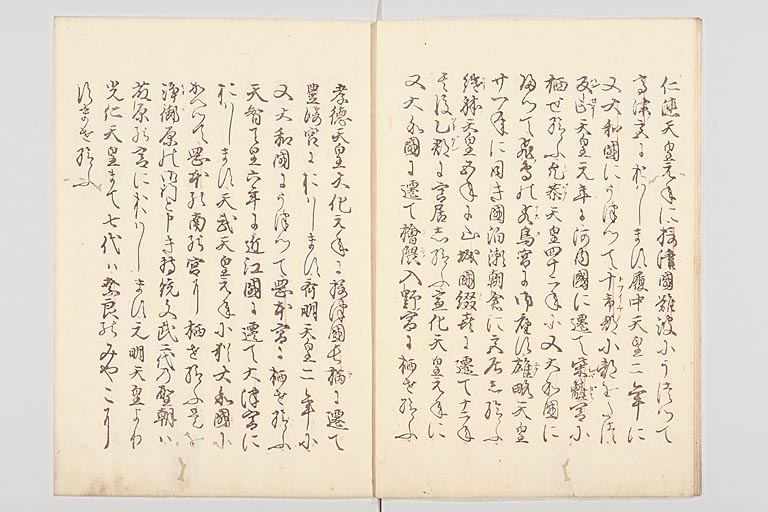 仁徳天皇元年に摂津國難波にうつつて
高津宮におはします履中天皇二年に
又大和國にうつつて十市郡に都をたつ
反正天皇元年に河内國に遷て柴籬宮に
栖せ給ふ允恭天皇四十二年に又大和國に
帰つて飛鳥の飛鳥宮に御座す雄略天皇
廿一年に同き國泊瀬朝倉に宮居し給ふ
継躰天皇五年に山城國綴喜に遷て十二年
其後乙郡に宮居し給ふ宣化天皇元年に
又大和國に遷て檜隈入野宮に栖を給ふ
孝徳天皇大化元年に摂津國長柄に遷て
豊崎宮におはします斉明天皇二年に
又大和國にうつつて岡本宮に栖を給ふ
天智天皇六年に近江國に遷て大津宮に
おはします天武天皇元年に猶大和國に
かへつて岡本の南の宮に栖を給ふ是を
浄御原の御門と申き持統文武二代の聖朝ハ
藤原の宮におはします元明天皇より
光仁天皇まて七代ハ奈良のみやこに
住ませ給ふ